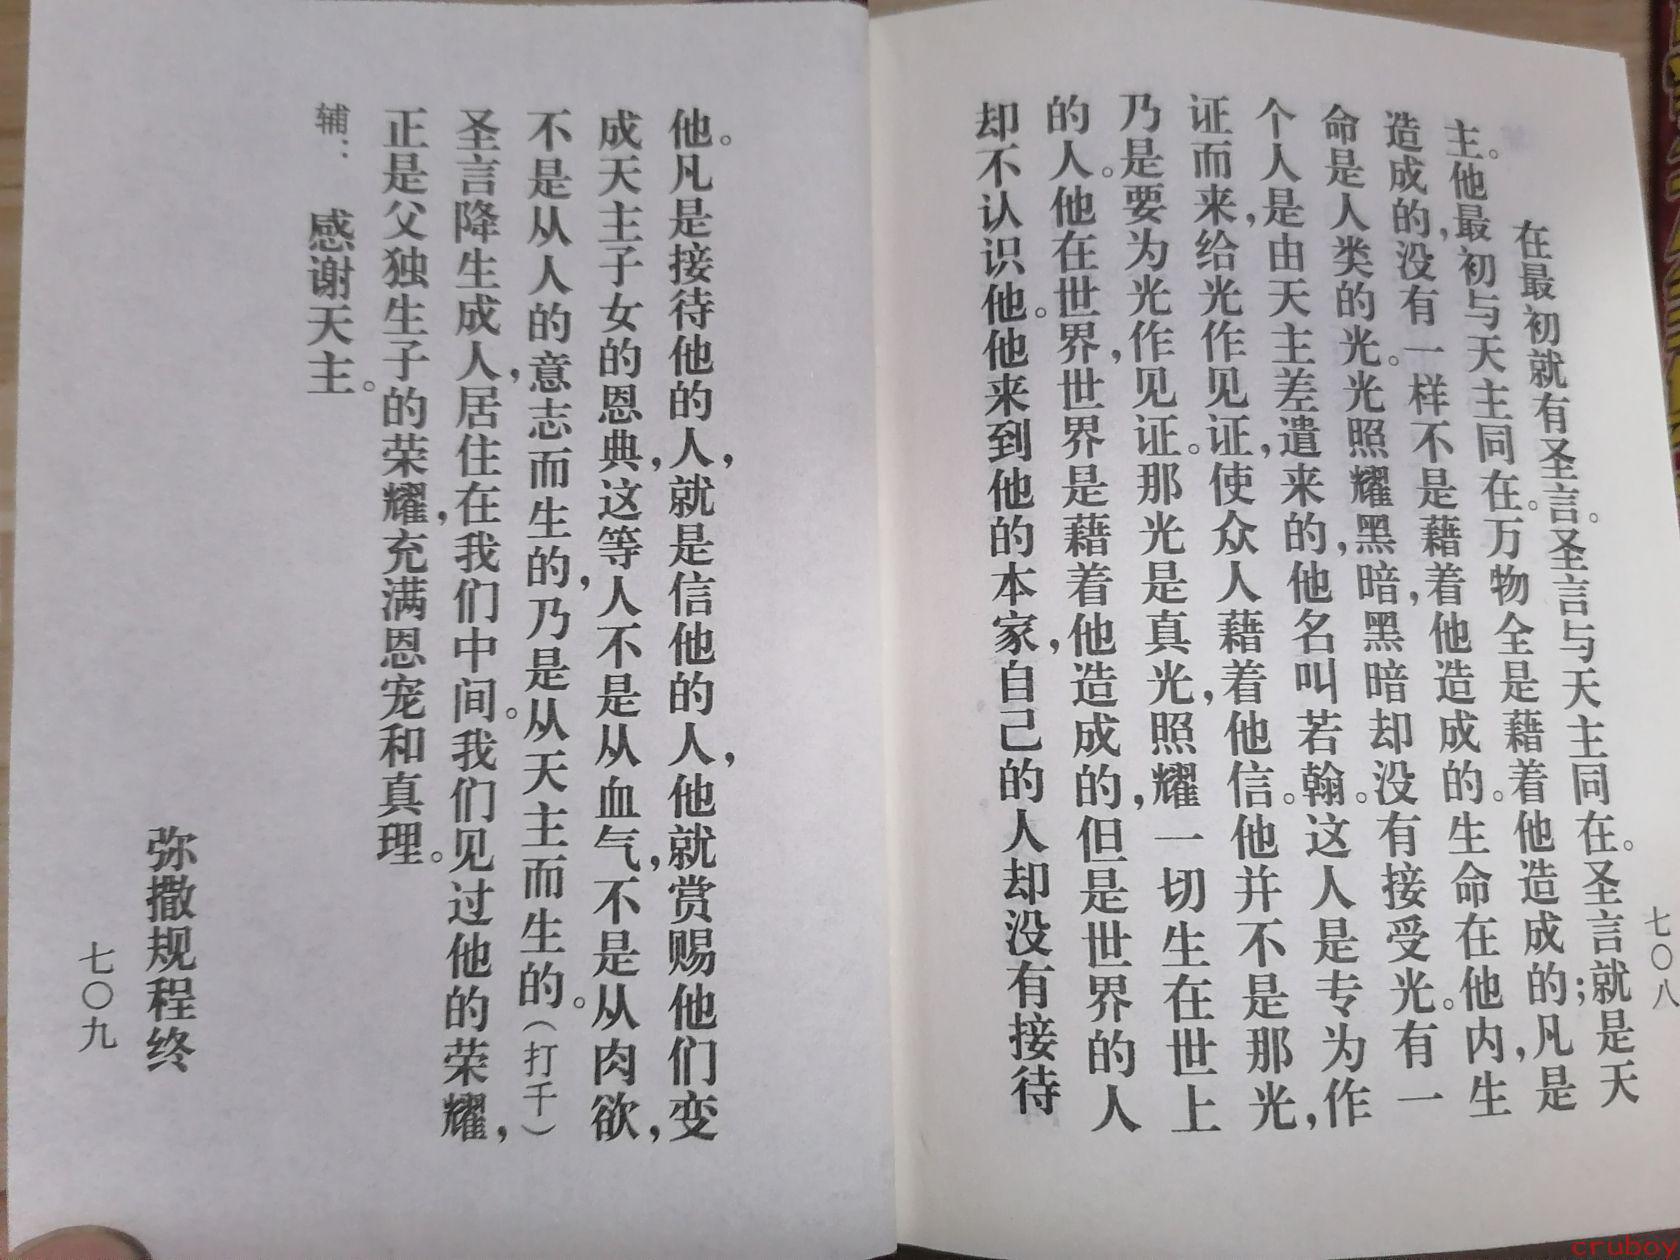 在最初就有圣言。圣言与天主同在。圣言就是天
主。他最初与天主同在。万物全是藉着他造成的；凡是
造成的，没有一样不是藉着他造成的。生命在他内，生
命是人类的光。光照耀黑暗，黑暗却没有接受光。有一
个人是由天主差遣来的，他名叫若翰。这人是专为作
证而来，给光作见证，使众人藉着他信。他并不是那光，
乃是要为光作见证。那光是真光，照耀一切生在世上
的人。他在世界，世界是藉着他造成的，但是世界的人
却不认识他。他来到他的本家，自己的人却没有接待
七〇八
他。凡是接待他的人，就是信他的人，他就赏赐他们变
成天主子女的恩典，这等人不是从血气，不是从肉欲，
不是从人的意志而生的，乃是从天主而生的。（打千）
圣言降生成人，居住在我们中间。我们见过他的荣耀，
正是父独生子的荣耀，充满恩宠和真理。
辅： 感谢天主。
弥撒规程终
七〇九
cruboy